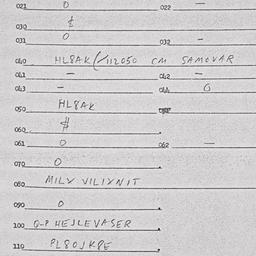 021 0 022 —
030 $
031 0 032 —
040 HL8AK(/112050 CM SAMOVAR
041 — 042 —
043 — 044 G
050 HL8AK
060 $
061 0 062 —
070 0
080 MILX VILIXNIT
090 0
100 Q-P HEJLEVASER
110 PL80JK8E